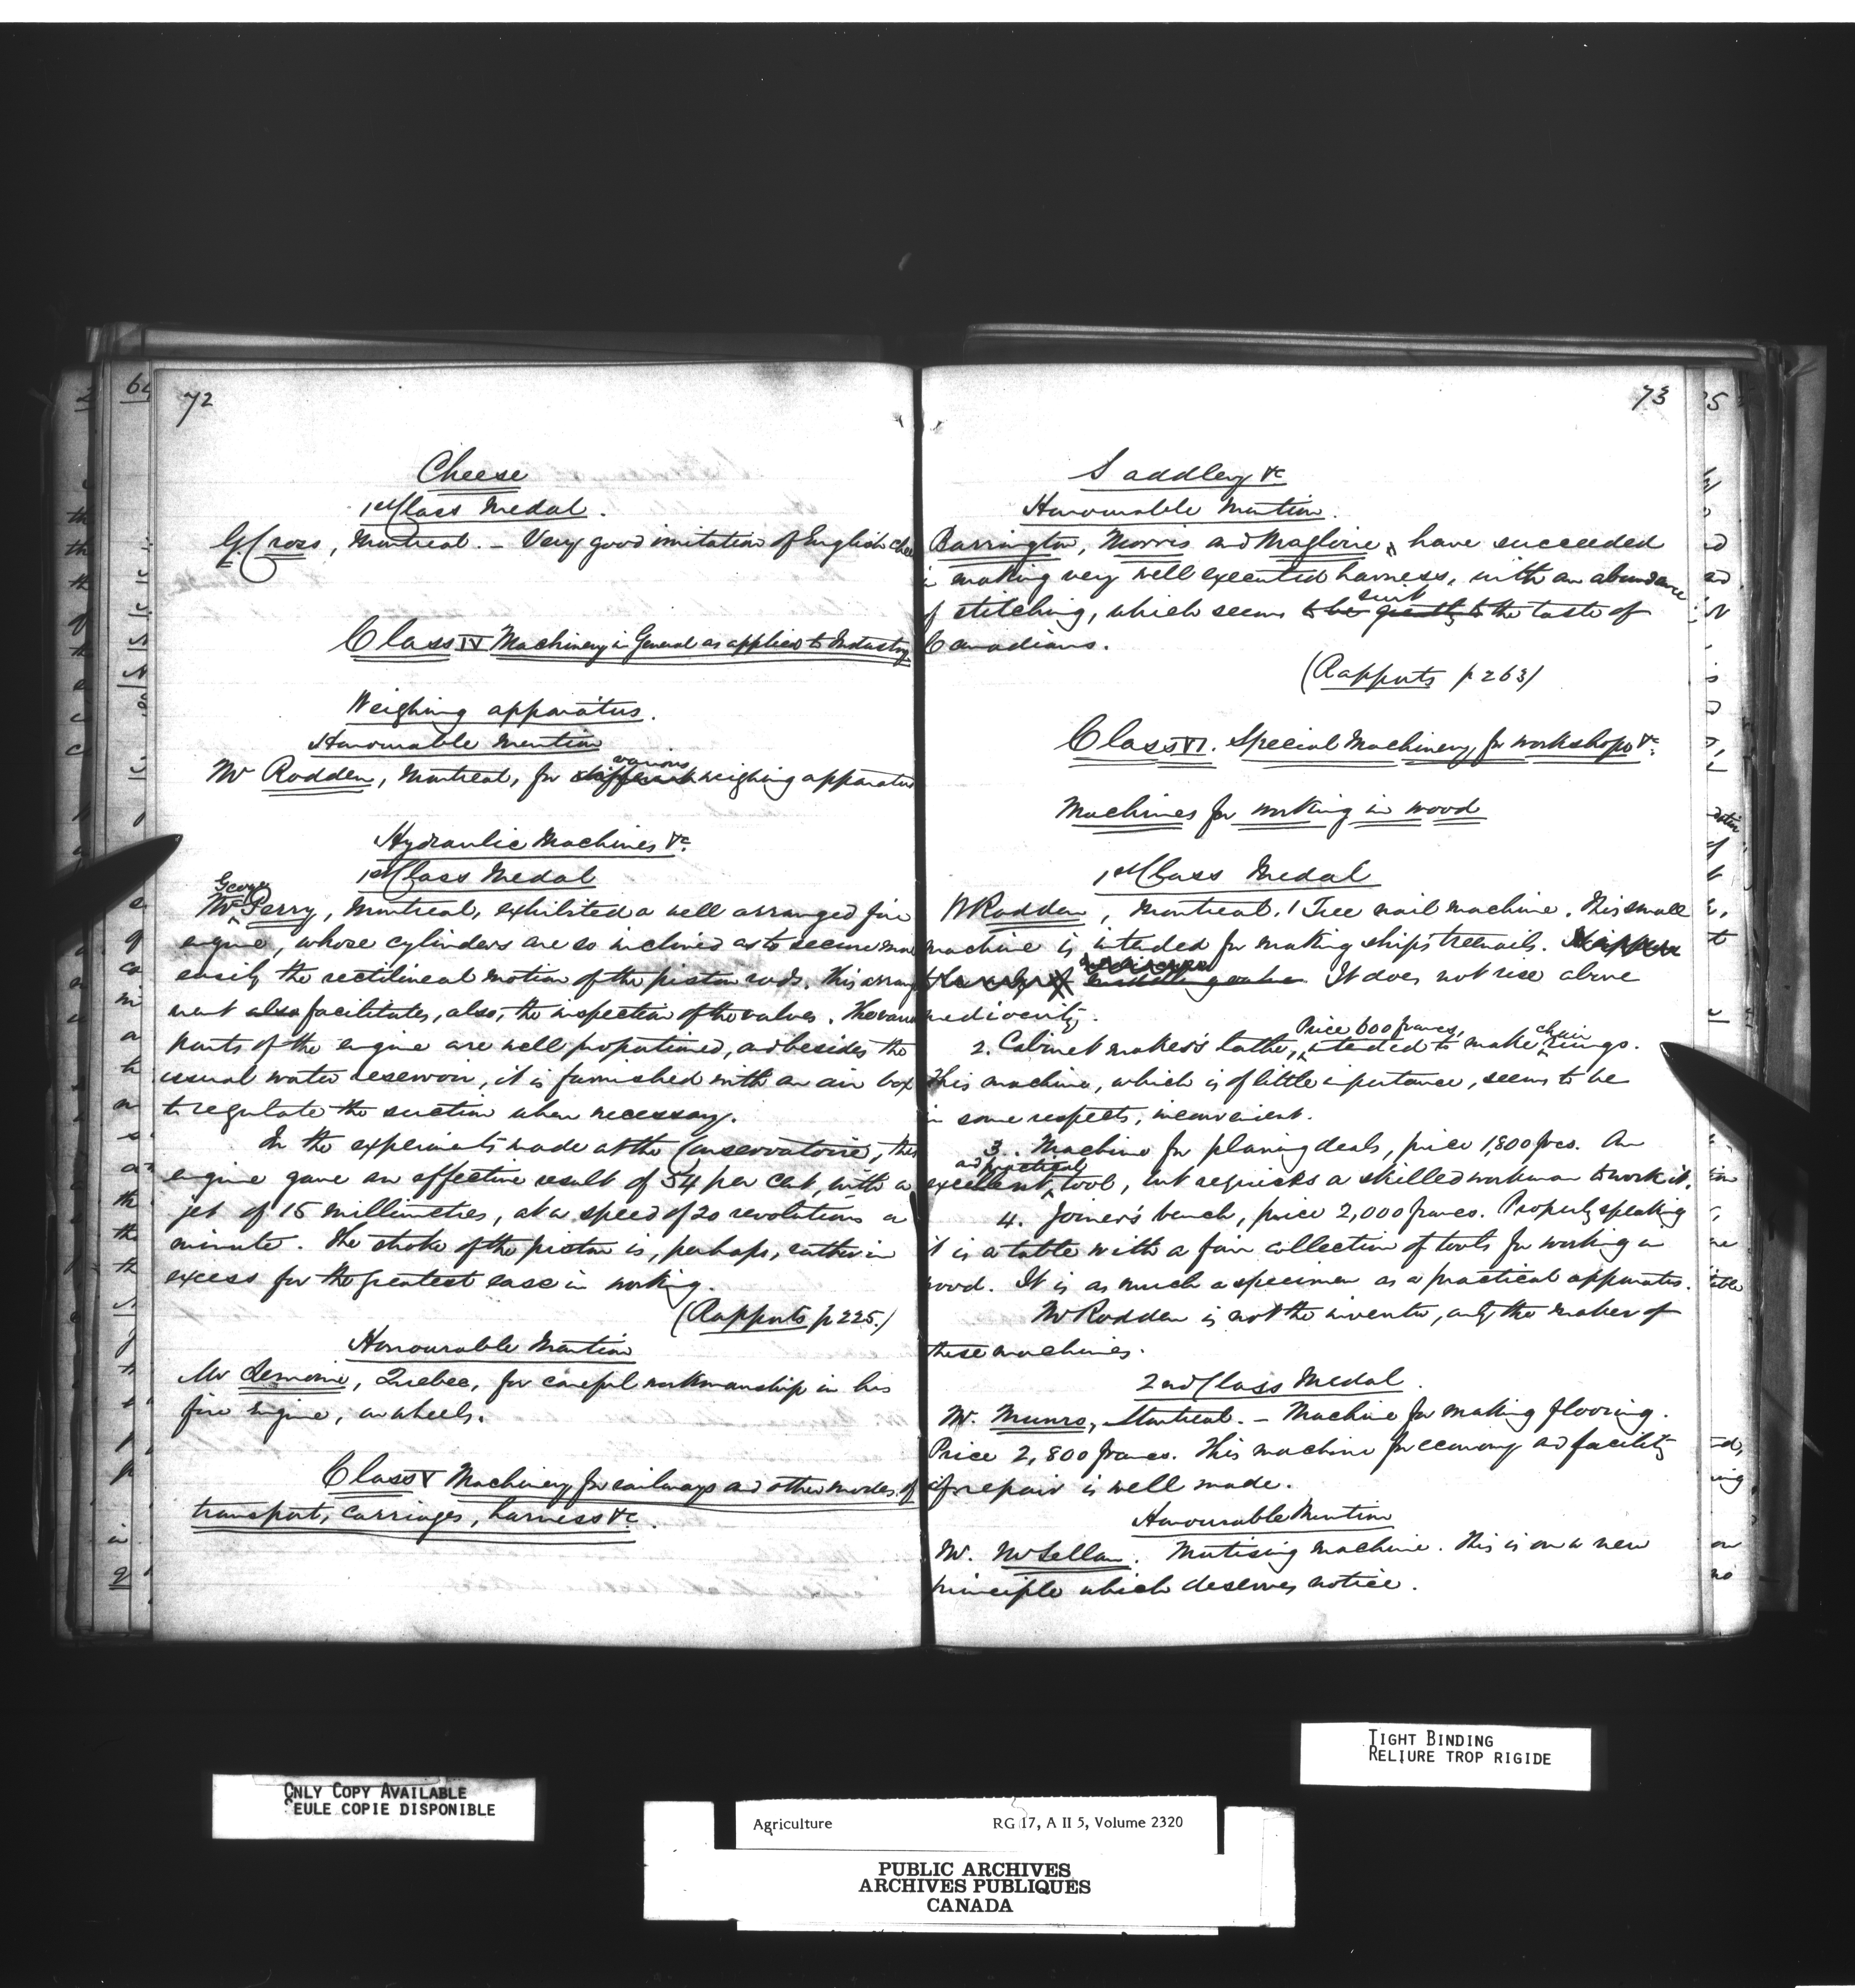 72
Cheese
1st Class Medal.
G. Cross, Montreal. - Very good imitation of English chee
Class IV Machinery in General as applied to Industry
Weighing apparatus.
Honourable Mention
various
Mr Rodden, Montreal, for different weighing apparatus
Hydraulic Machines &c.
1st Class Medal
George
Mr Perry, Montreal, exhibited a well arranged fire
engine, whose cylinders are so inclined as to secure more
easily the rectilineal motion of the piston rods. This arrange
ment also facilitates, also, the inspection of the valves. The various
parts of the engine are well proportioned, and besides the
usual water reservoir, it is furnished with an air box
to regulate the suction when necessary.
In the experiments made at the Conservatoire, this
engine gave an effective result of 54 per cent, with a
jet of 15 millimetres, at a speed of 20 revolutions a
minute. The stroke of the piston is, perhaps, rather in
excess for the greatest ease in working.
(Rapports p 225.)
Honourable Mention
Mr Lemoine, Quebec, for careful workmanship in his
fire engine, on wheels.
Class V Machinery for railways and other modes of
transport, carriages, harness &c.
73
Saddlery &c
Honourable Mention.
Barrington, Morris and Magloire, have succeeded
in making very well executed harness, with an abundance
suit
of stitching, which seems to be greatly to the taste of
Canadians.
(Rapports p 263)
Class VI. Special Machinery for workshops &c.
Machines for working in wood
1st Class Medal
W Rodden, Montreal. 1 Tree nail machine. This small
machine is intended for making ships treenails.
middling value It does not rise above
mediocrity.
Price 600 francs, chair
2. Cabinet maker's lathe, intended to make rungs.
This machine, which is of little importance, seems to be
in some respects, inconvenient.
3. Machine for planing deals, price 1,800 frcs. An
and practical
excellent tool, but requires a skilled workman to work it.
4. Joiner's bench, price 2,000 francs. Properly speaking
it is a table with a fair collection of tools for working in
wood. It is as much a specimen as a practical apparatus.
Mr Rodden is not the inventor, only the maker of
these machines.
2nd Class Medal.
Mr. Munro, Montreal. - Machine for making flooring.
Price 2,800 francs. This machine for economy and facility
of repair is well made.
Honourable Mention
Mr. McLellan. Mortising machine. This is on a new
principle which deserves notice.
ONLY COPY AVAILABLE
SEULE COPIE DISPONIBLE
TIGHT BINDING
RELIURE TROP RIGIDE
Agriculture RG 17, A II 5, Volume 2320
PUBLIC ARCHIVES
ARCHIVES PUBLIQUES
CANADA